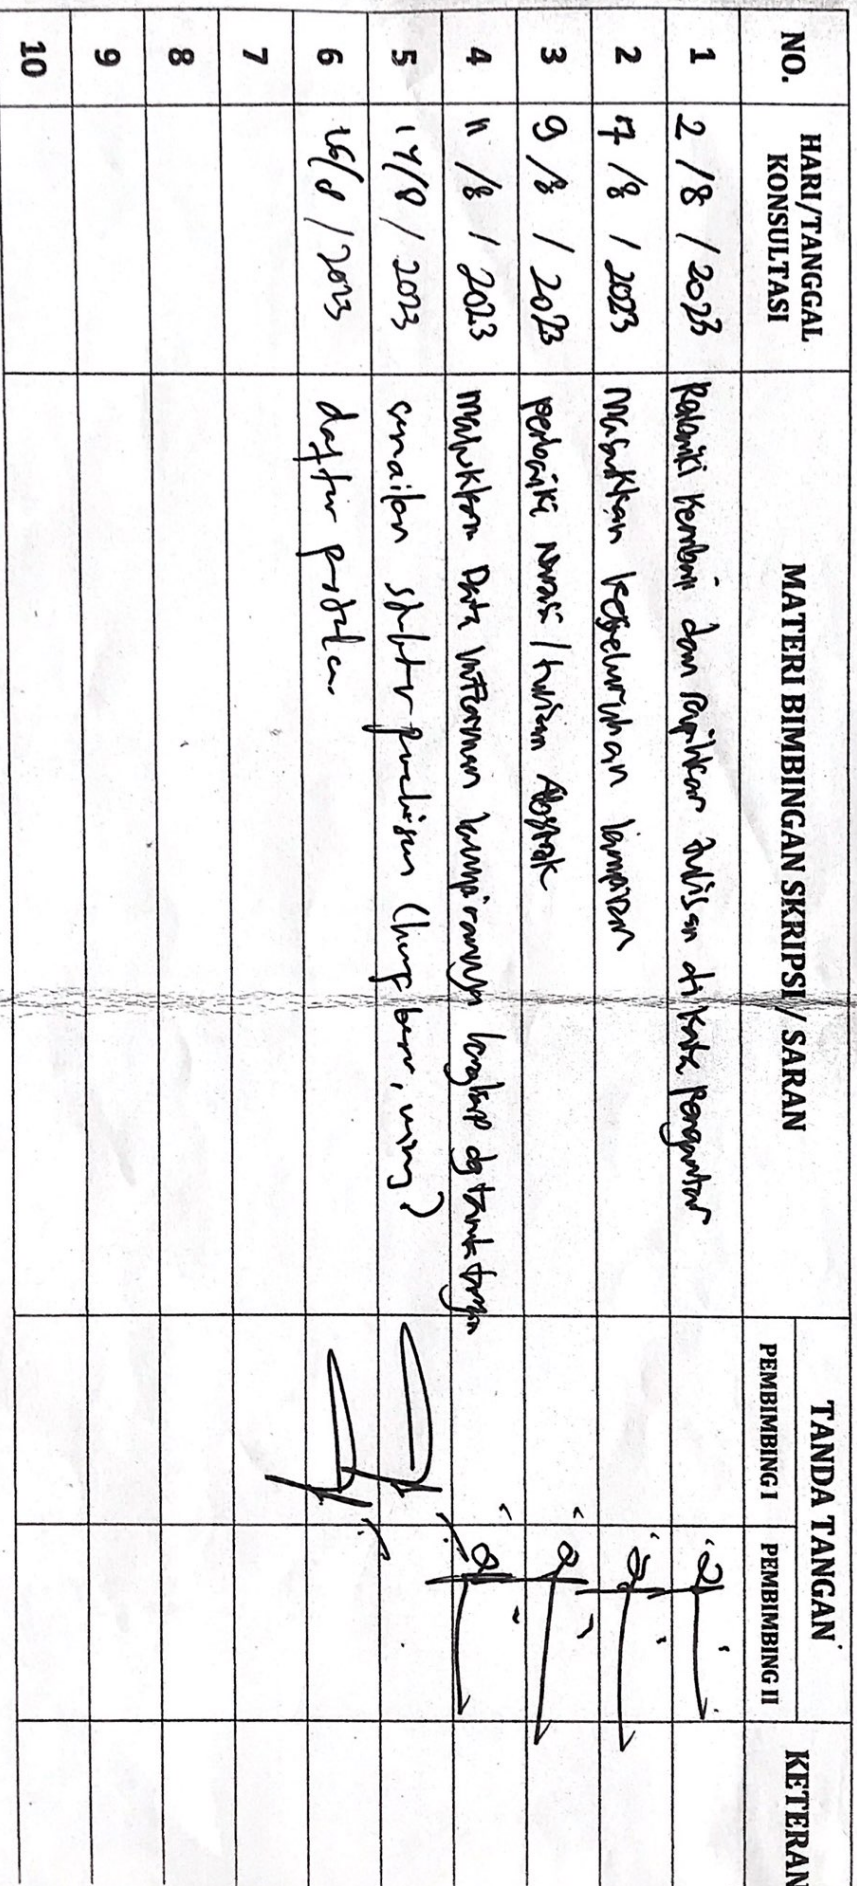 NO.
HARI/TANGGAL
KONSULTASI
MATERI BIMBINGAN SKRIPSI / SARAN
TANDA TANGAN
PEMBIMBING I
PEMBIMBING II
KETERAN
1 2/8/2023 Perbaiki Kembali dan rapihkan tulisan di Kata pengantar
2 7/8/2023 Masukkan keseluruhan lampiran
3 9/8/2023 perbaiki Narasi/tulisan Abstrak
4 11/8/2023 masukkan Data informan lampirannya lengkap dg tanda tangan
5 14/8/2023
6 16/8/2023 daftar
7
8
9
10